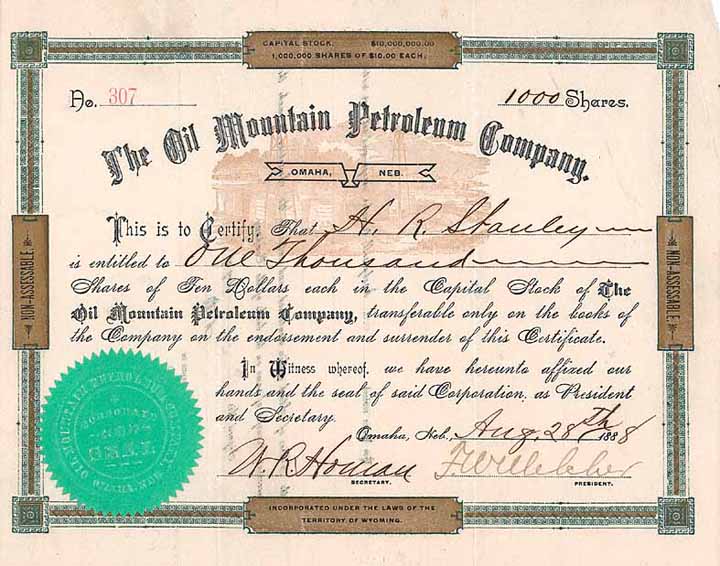 CAPITAL STOCK, $10,000,000.00
1,000,000 SHARES OF $10.00 EACH.
No. 307
1000 Shares.
The Oil Mountain Petroleum Company.
OMAHA, NEB.
This is to Certify, That H. R. Stanley
is entitled to One Thousand
Shares of Ten Dollars each in the Capital Stock of The
Oil Mountain Petroleum Company, transferable only on the books of
the Company on the endorsement and surrender of this Certificate.
In Witness whereof, we have hereunto affixed our
hands and the seal of said Corporation, as President
and Secretary.
Omaha, Neb., Aug. 28th 1888
W. R. Homan
SECRETARY.
PRESIDENT.
NON-ASSESSABLE.
NON-ASSESSABLE.
INCORPORATED UNDER THE LAWS OF THE
TERRITORY OF WYOMING.